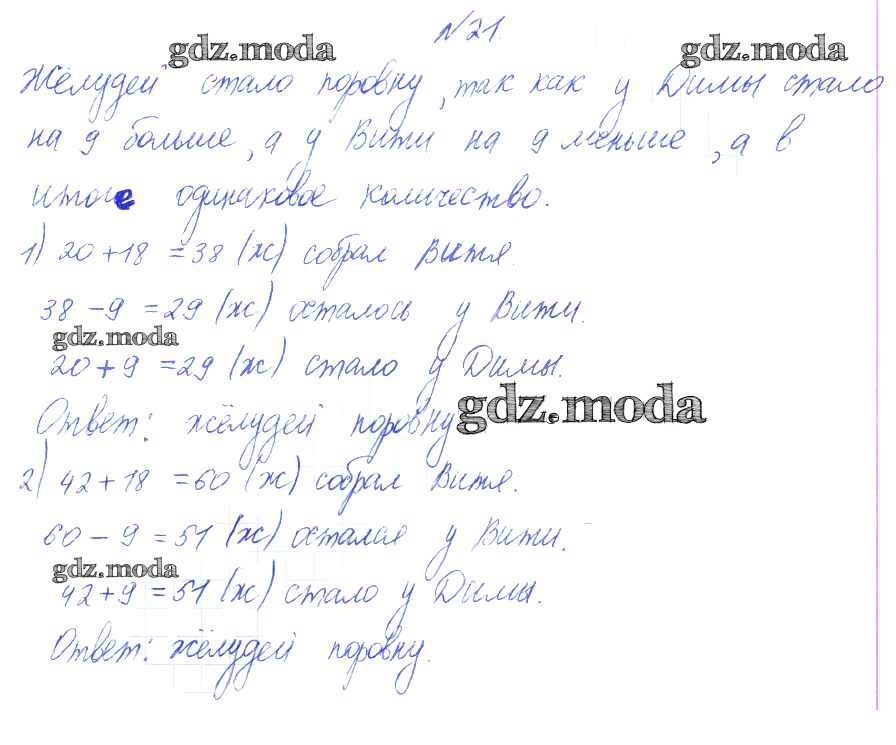 №21.
gdz.moda gdz.moda
Жёлудей стало поровну, так как у Димы стало
на 9 больше, а у Вити на 9 меньше, а в
итоге одинаковое количество.
1) 20+18=38 (ж) собрал Витя.
38-9=29 (ж) осталось у Вити.
gdz.moda
20+9=29 (ж) стало у Димы.
Ответ: жёлудей поровну
gdz.moda
2) 42+18=60 (ж) собрал Витя.
60-9=51 (ж) остался у Вити.
gdz.moda
42+9=51 (ж) стало у Димы.
Ответ: жёлудей поровну.